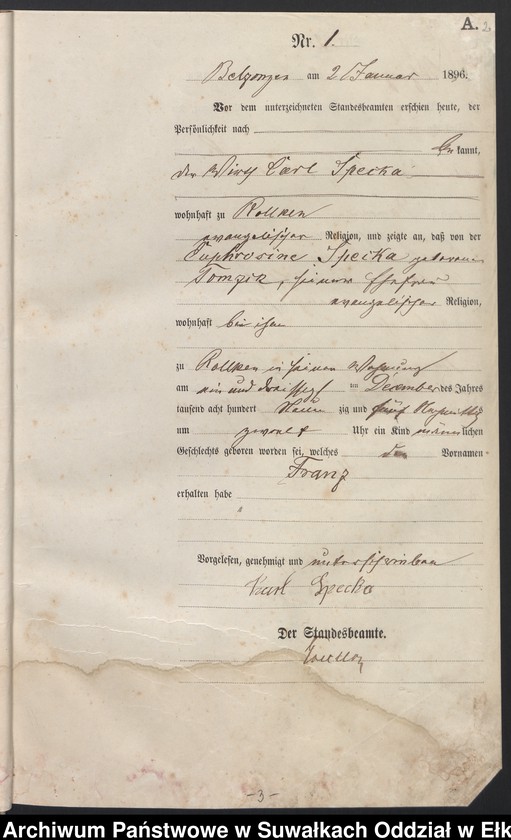 A.
2.
Nr. 1.
Belzonzen am 2 Januar 1896.
Vor dem unterzeichneten Standesbeamten erschien heute, der
Persönlichkeit nach
be kannt,
der Wirth Carl Specka
wohnhaft zu Rollken
evangelischer Religion, und zeigte an, daß von der
Euphrosine Specka geborenen
Tomzik, seiner Ehefrau
evangelischer Religion,
wohnhaft bei ihm
zu Rollken in seiner Wohnung
am ein und dreißigst im December des Jahres
tausend acht hundert neun zig und fünf Nachmittags
um zwoelf Uhr ein Kind männlichen
Geschlechts geboren worden sei, welches den Vornamen
Franz
erhalten habe
Vorgelesen, genehmigt und unterschrieben
Karl Specka
Der Standesbeamte.
-3-
Archiwum Państwowe w Suwałkach Oddział w Ełk